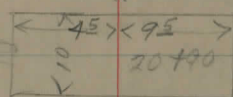 45 95
10
20+90